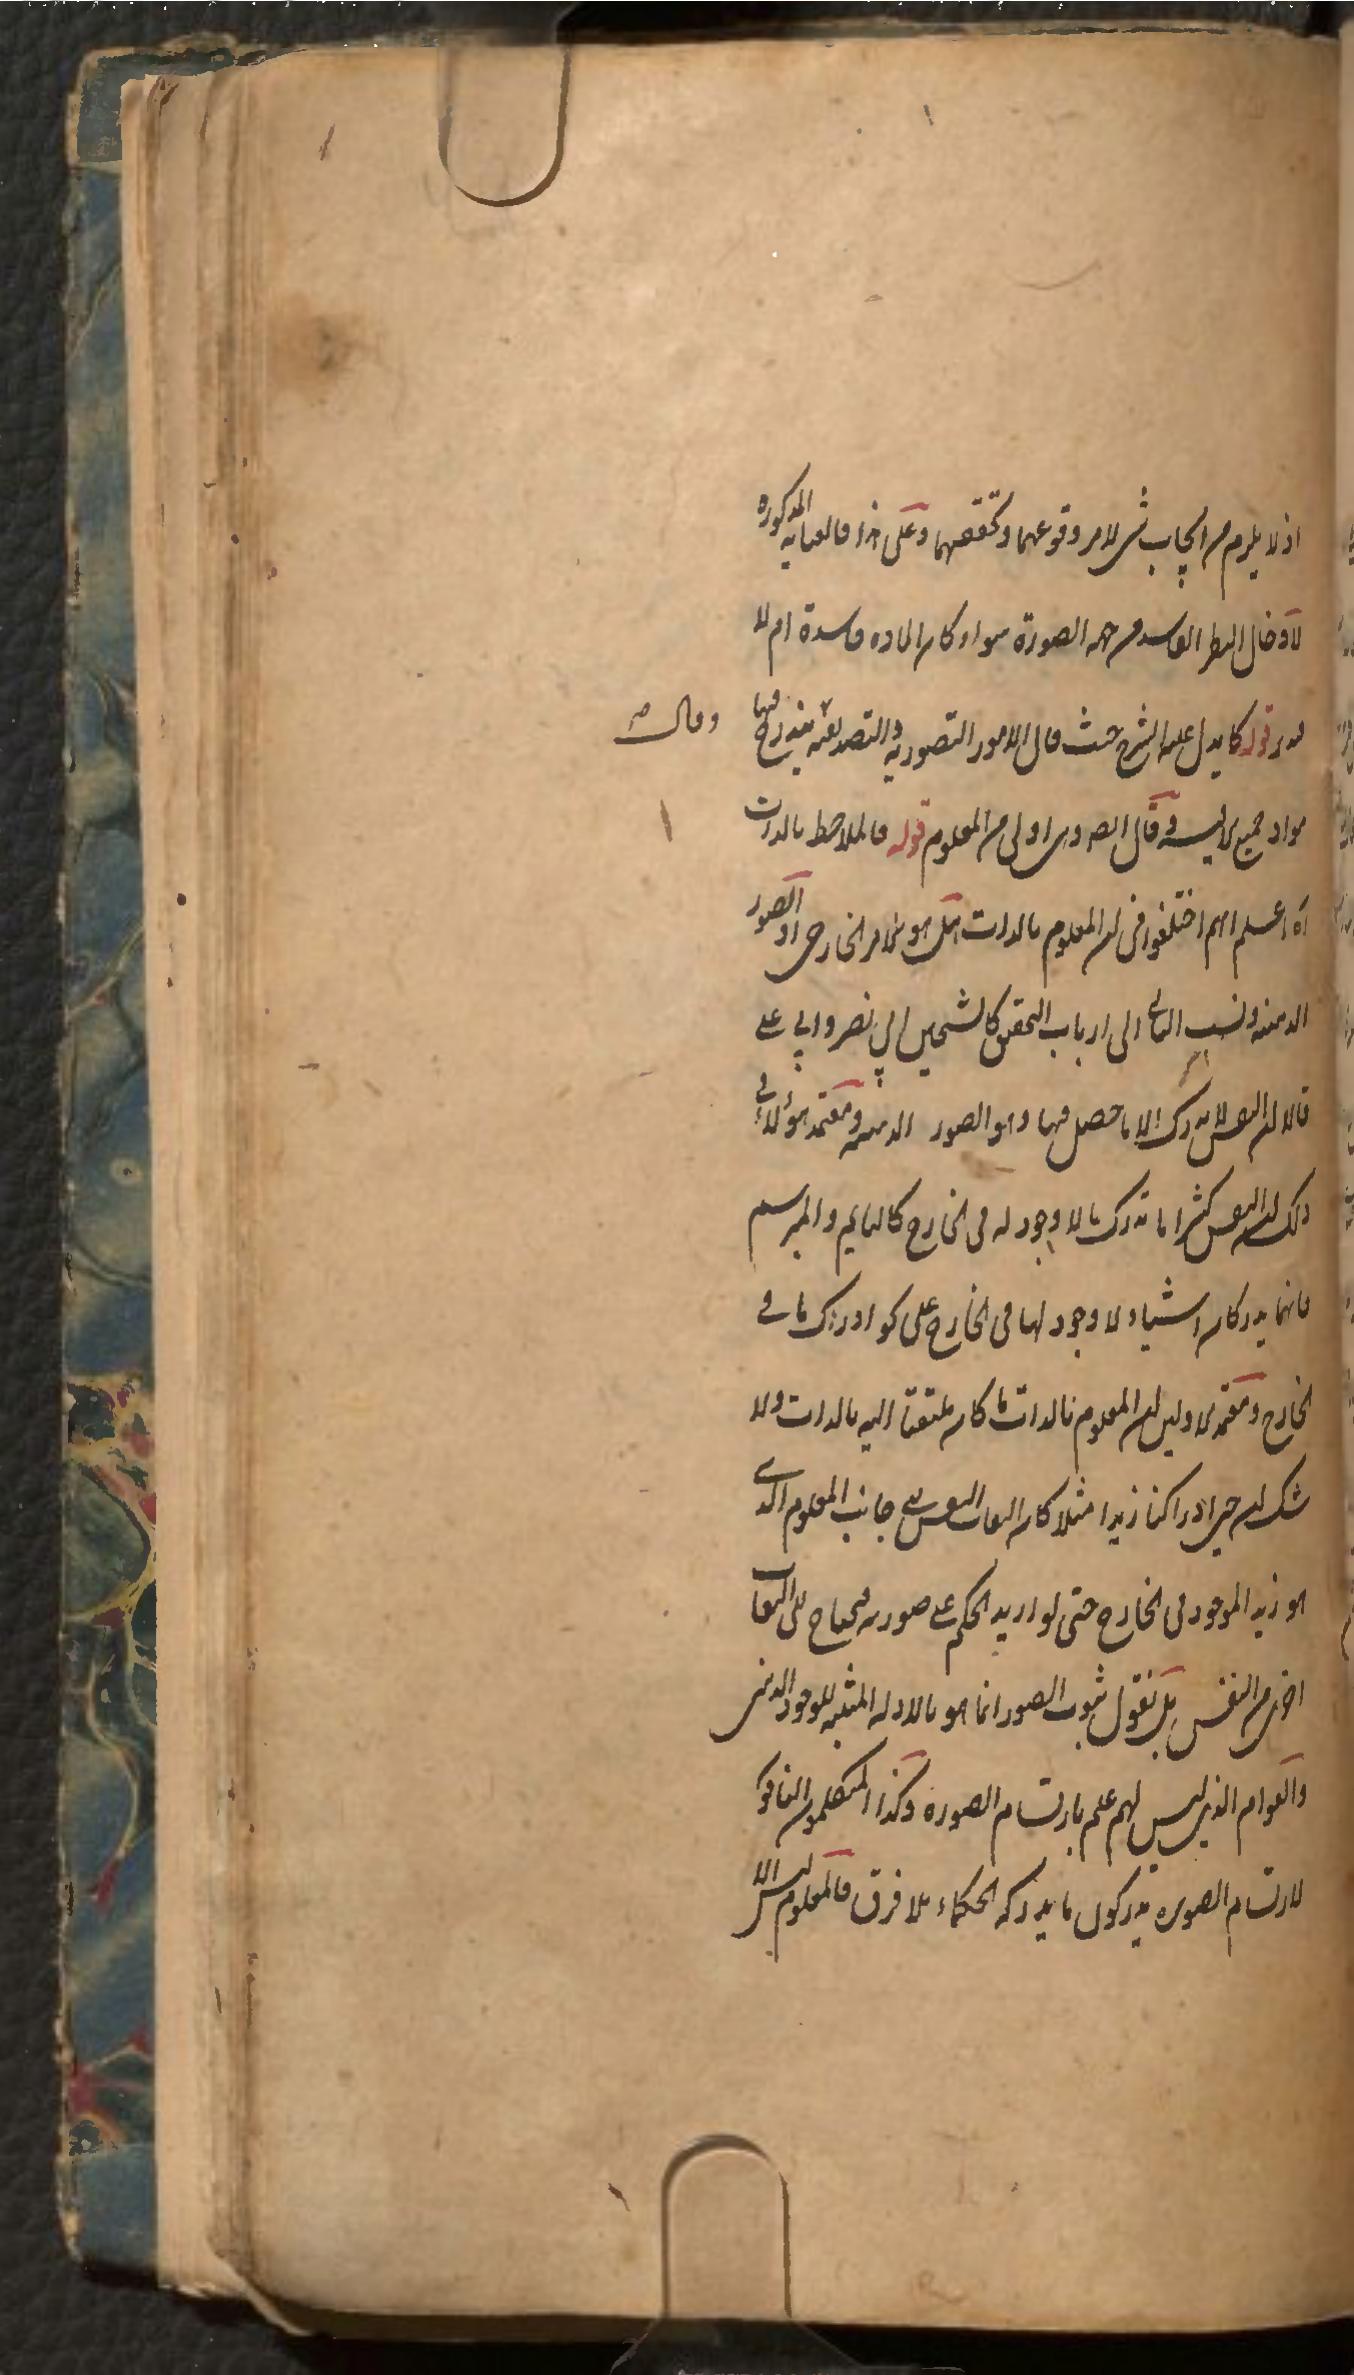 اذ لا يلزم من ايجاب شى لامر وقوعهما وتحققهما وعلى هذا فالعناية المذكورة
لادخال النظر الفاسد من جهة الصورة سواء كان المادة فاسدة ام لا
قوله كما يدل عليه الشرح حيث قال الامور التصورية والتصديقية يندرج فيها
وقال
مواد جميع الاقيسة وقال اولى من المعلوم قوله فالملاحظ بالذات
اه اعلم انهم اختلفوا فى ان المعلوم بالذات هل هو الامر الخارجى او الصور
الذهنية ونسب الثانى الى ارباب التحقيق كالشيخين ابى نصر وابى على
قالا ان النفس لا يدرك الا ما حصل فيها وهو الصور الذهنية ومعتمد هؤلاء فى
ذلك ان النفس كثيرا ما تدرك ما لا وجود له فى الخارج كالنايم والمبرسم
فانهما يدركان اشياء لا وجود لها فى الخارج على نحو ادراك ما فى
الخارج ومعتمد الاولين ان المعلوم بالذات ما كان ملتفتا اليه بالذات ولا
شك ان حين ادراكنا زيدا مثلا كان التفات النفس الى جانب المعلوم الذى
هو زيد الموجود فى الخارج حتى لو اريد الحكم على صورته فيحتاج الى التفات
اخر من النفس بل نقول ثبوت الصور انما هو بالادلة المثبتة للوجود الذهنى
والعوام الذين ليس لهم علم بارتسام الصورة وكذا المتكلمون النافون
لارتسام الصورة يدركون ما يدركه الحكماء بلا فرق فالمعلوم ليس الا